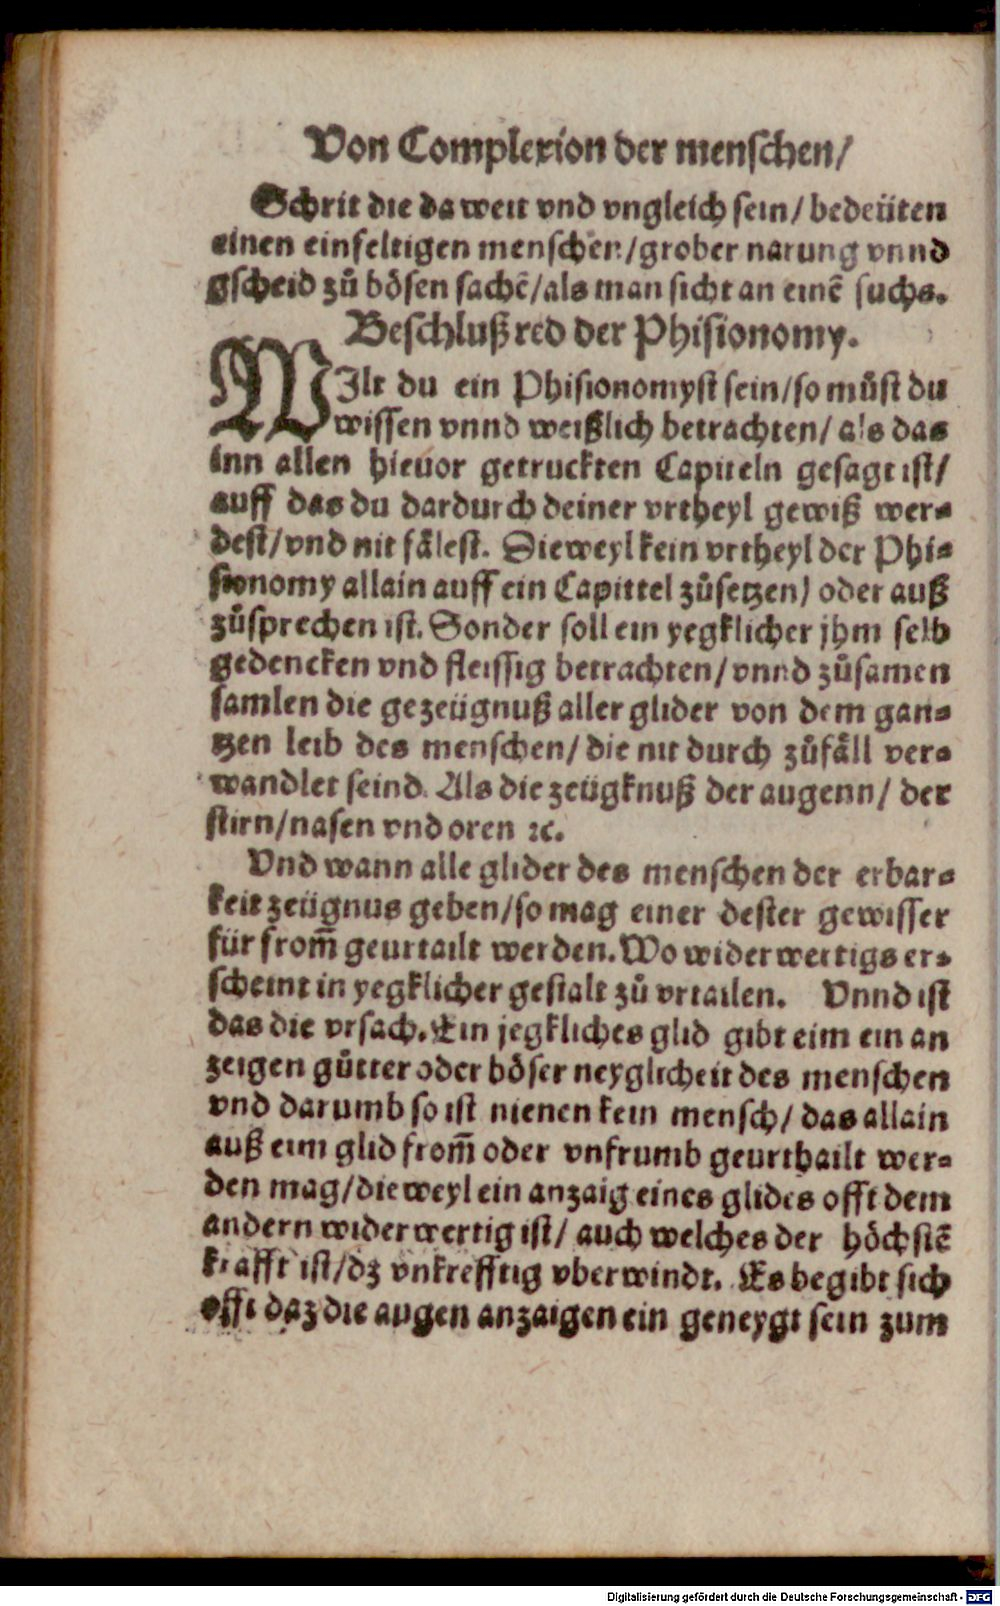 Von Complexion der menschen/
Schrit die da weit vnd vngleich sein/ bedeüten
einen einfeltigen menschen/grober narung vnnd
gscheid zů bösen sachē/als man sicht an einē fuchs.
Beschlußred der Phisionomy.
WIlt du ein Phisionomyst sein/so můst du
wissen vnnd weißlich betrachten/ als das
inn allen hieuor getruckten Capiteln gesagt ist/
auff das du dardurch deiner vrtheyl gewiß wer-
dest/vnd nit fälest. Dieweyl kein vrtheyl der Phi-
sionomy allain auff ein Capittel zůsetzen/ oder auß
zůsprechen ist. Sonder soll ein yegklicher jhm selb
gedencken vnd fleissig betrachten/ vnnd zůsamen
samlen die gezeügnuß aller glider von dem gan-
tzen leib des menschen/ die nit durch zůfäll ver-
wandlet seind. Als die zeügknuß der augenn/ der
stirn/nasen vnd oren ꝛc.
Vnd wann alle glider des menschen der erbar-
keit zeügnus geben/so mag einer dester gewisser
für from̄ geurtailt werden. Wo widerwertigs er-
scheint in yegklicher gestalt zů vrtailen. Vnnd ist
das die vrsach. Ein jegkliches glid gibt eim ein an
zeigen gůtter oder böser neyglicheit des menschen
vnd darumb so ist nienen kein mensch/ das allain
auß eim glid from̄ oder vnfrumb geurthailt wer-
den mag/dieweyl ein anzaig eines glides offt dem
andern widerwertig ist/ auch welches der höchstē
krafft ist/dz vnkrefftig vberwindt. Es begibt sich
offt daz die augen anzaigen ein geneygt sein zum
Digitalisierung gefördert durch die Deutsche Forschungsgemeinschaft - DFG